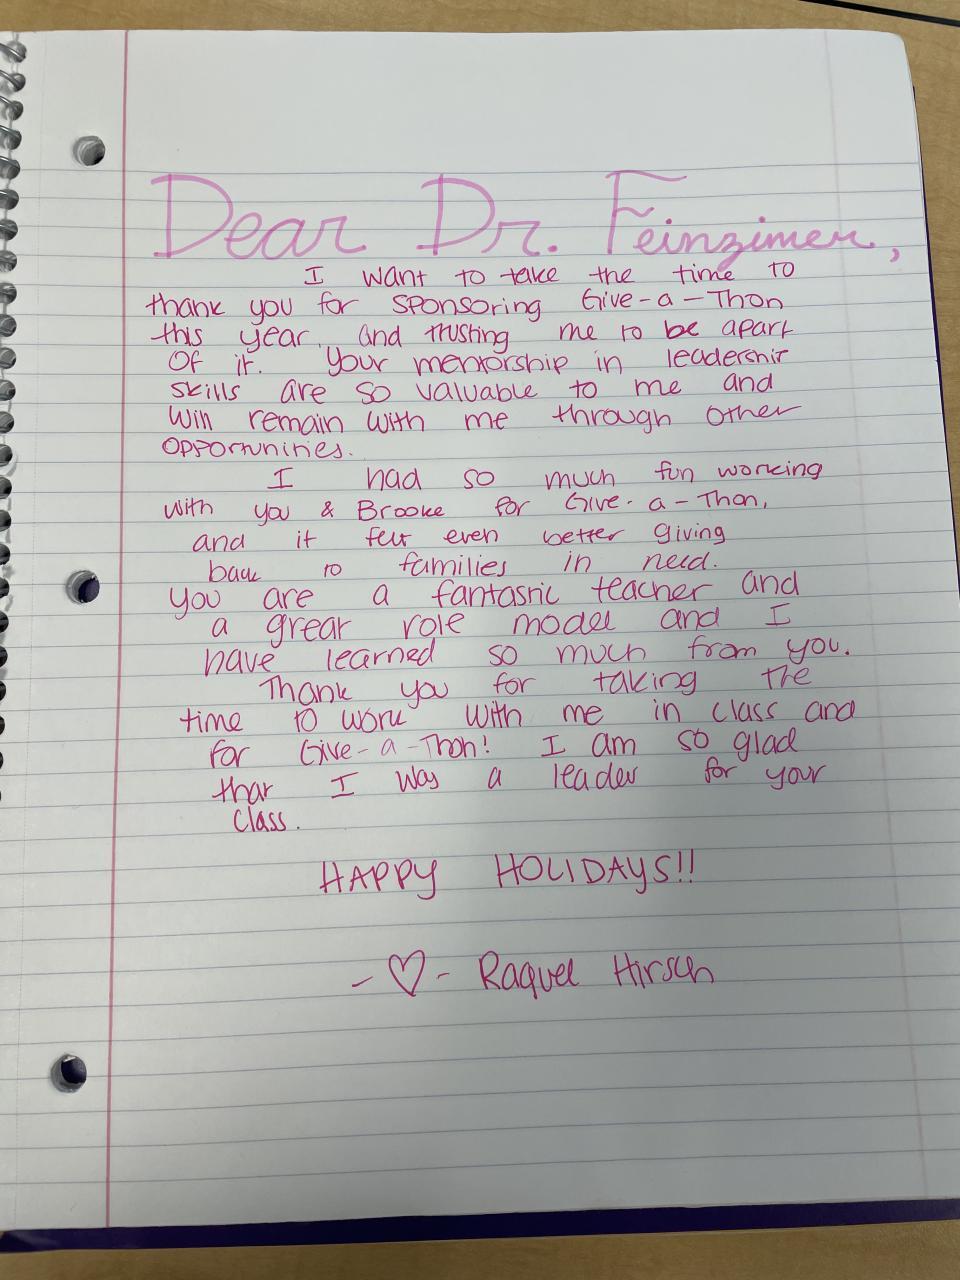 Dear Dr. Feinzimer,
I want to take the time to
thank you for sponsoring Give-a-Thon
this year, and trusting me to be apart
of it. Your mentorship in leadership
skills are so valuable to me and
will remain with me through other
opportunities.
I had so much fun working
with you & Brooke for Give-a-Thon,
and it felt even better giving
back to families in need.
You are a fantastic teacher and
a great role model and I
have learned so much from you.
Thank you for taking the
time to work with me in class and
for Give-a-Thon! I am so glad
that I was a leader for your
class.
HAPPY HOLIDAYS!!
-♡- Raquel Hirsch